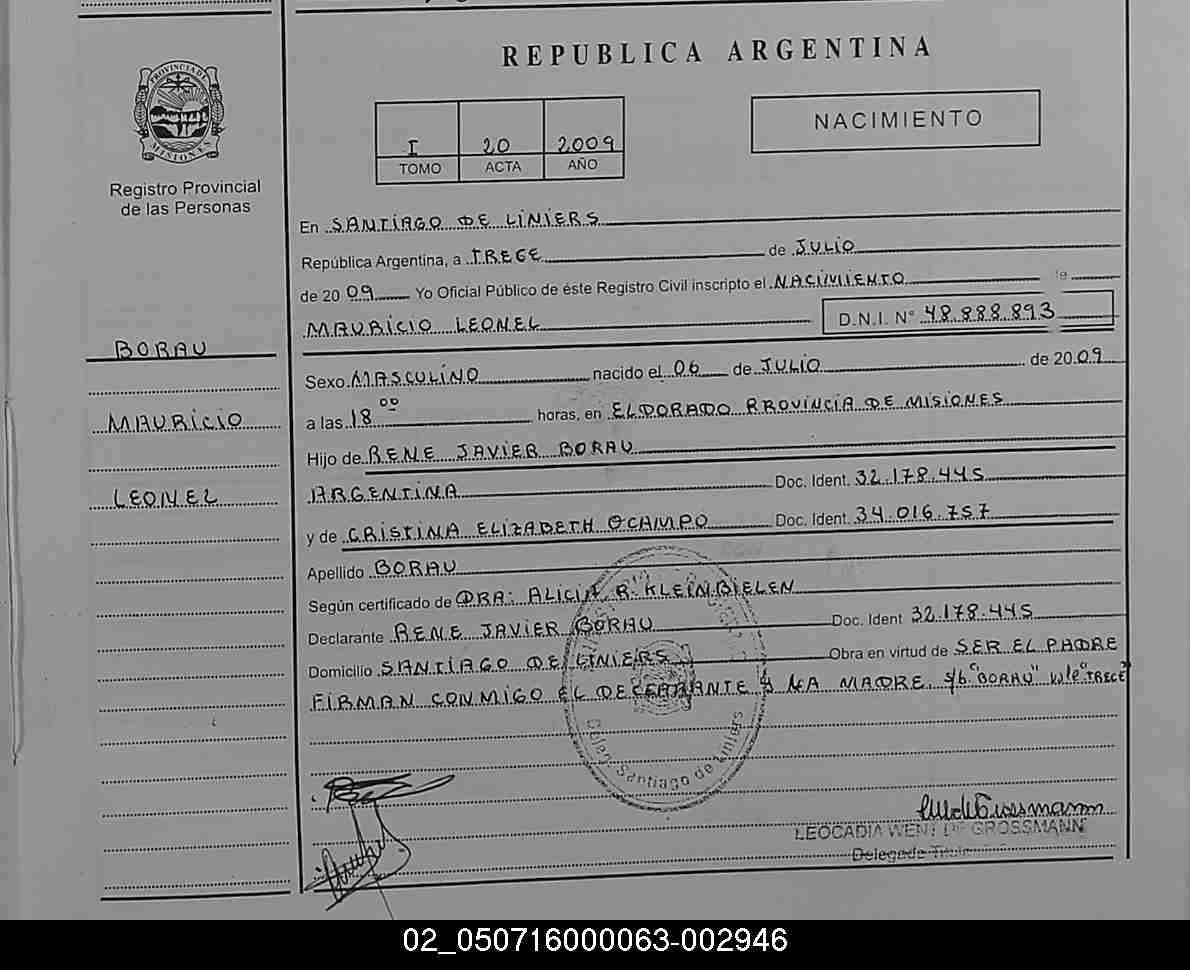 REPUBLICA ARGENTINA
PROVINCIA DE
MISIONES
Registro Provincial
de las Personas
I 20 2009
TOMO ACTA AÑO
NACIMIENTO
BORAU
MAURICIO
LEONEL
En SANTIAGO DE LINIERS
República Argentina, a TRECE de JULIO
de 2009 Yo Oficial Público de éste Registro Civil inscripto el NACIMIENTO de
MAURICIO LEONEL D.N.I. N° 48.888.893
Sexo MASCULINO nacido el 06 de JULIO de 2009
a las 18 00 horas, en ELDORADO PROVINCIA DE MISIONES
Hijo de RENE JAVIER BORAU
ARGENTINA Doc. Ident. 32.178.445
y de CRISTINA ELIZABETH OCAMPO Doc. Ident. 34.016.757
Apellido BORAU
Según certificado de DRA: ALICIA R. KLEINBIELEN
Declarante RENE JAVIER BORAU Doc. Ident 32.178.445
Domicilio SANTIAGO DE LINIERS Obra en virtud de SER EL PADRE
FIRMAN CONMIGO EL DECLARANTE Y LA MADRE. s/b "BORAU" vale "TRECE"
Deleg. Santiago de Liniers
LEOCADIA WENT DE GROSSMANN
Delegada Titular
02_050716000063-002946